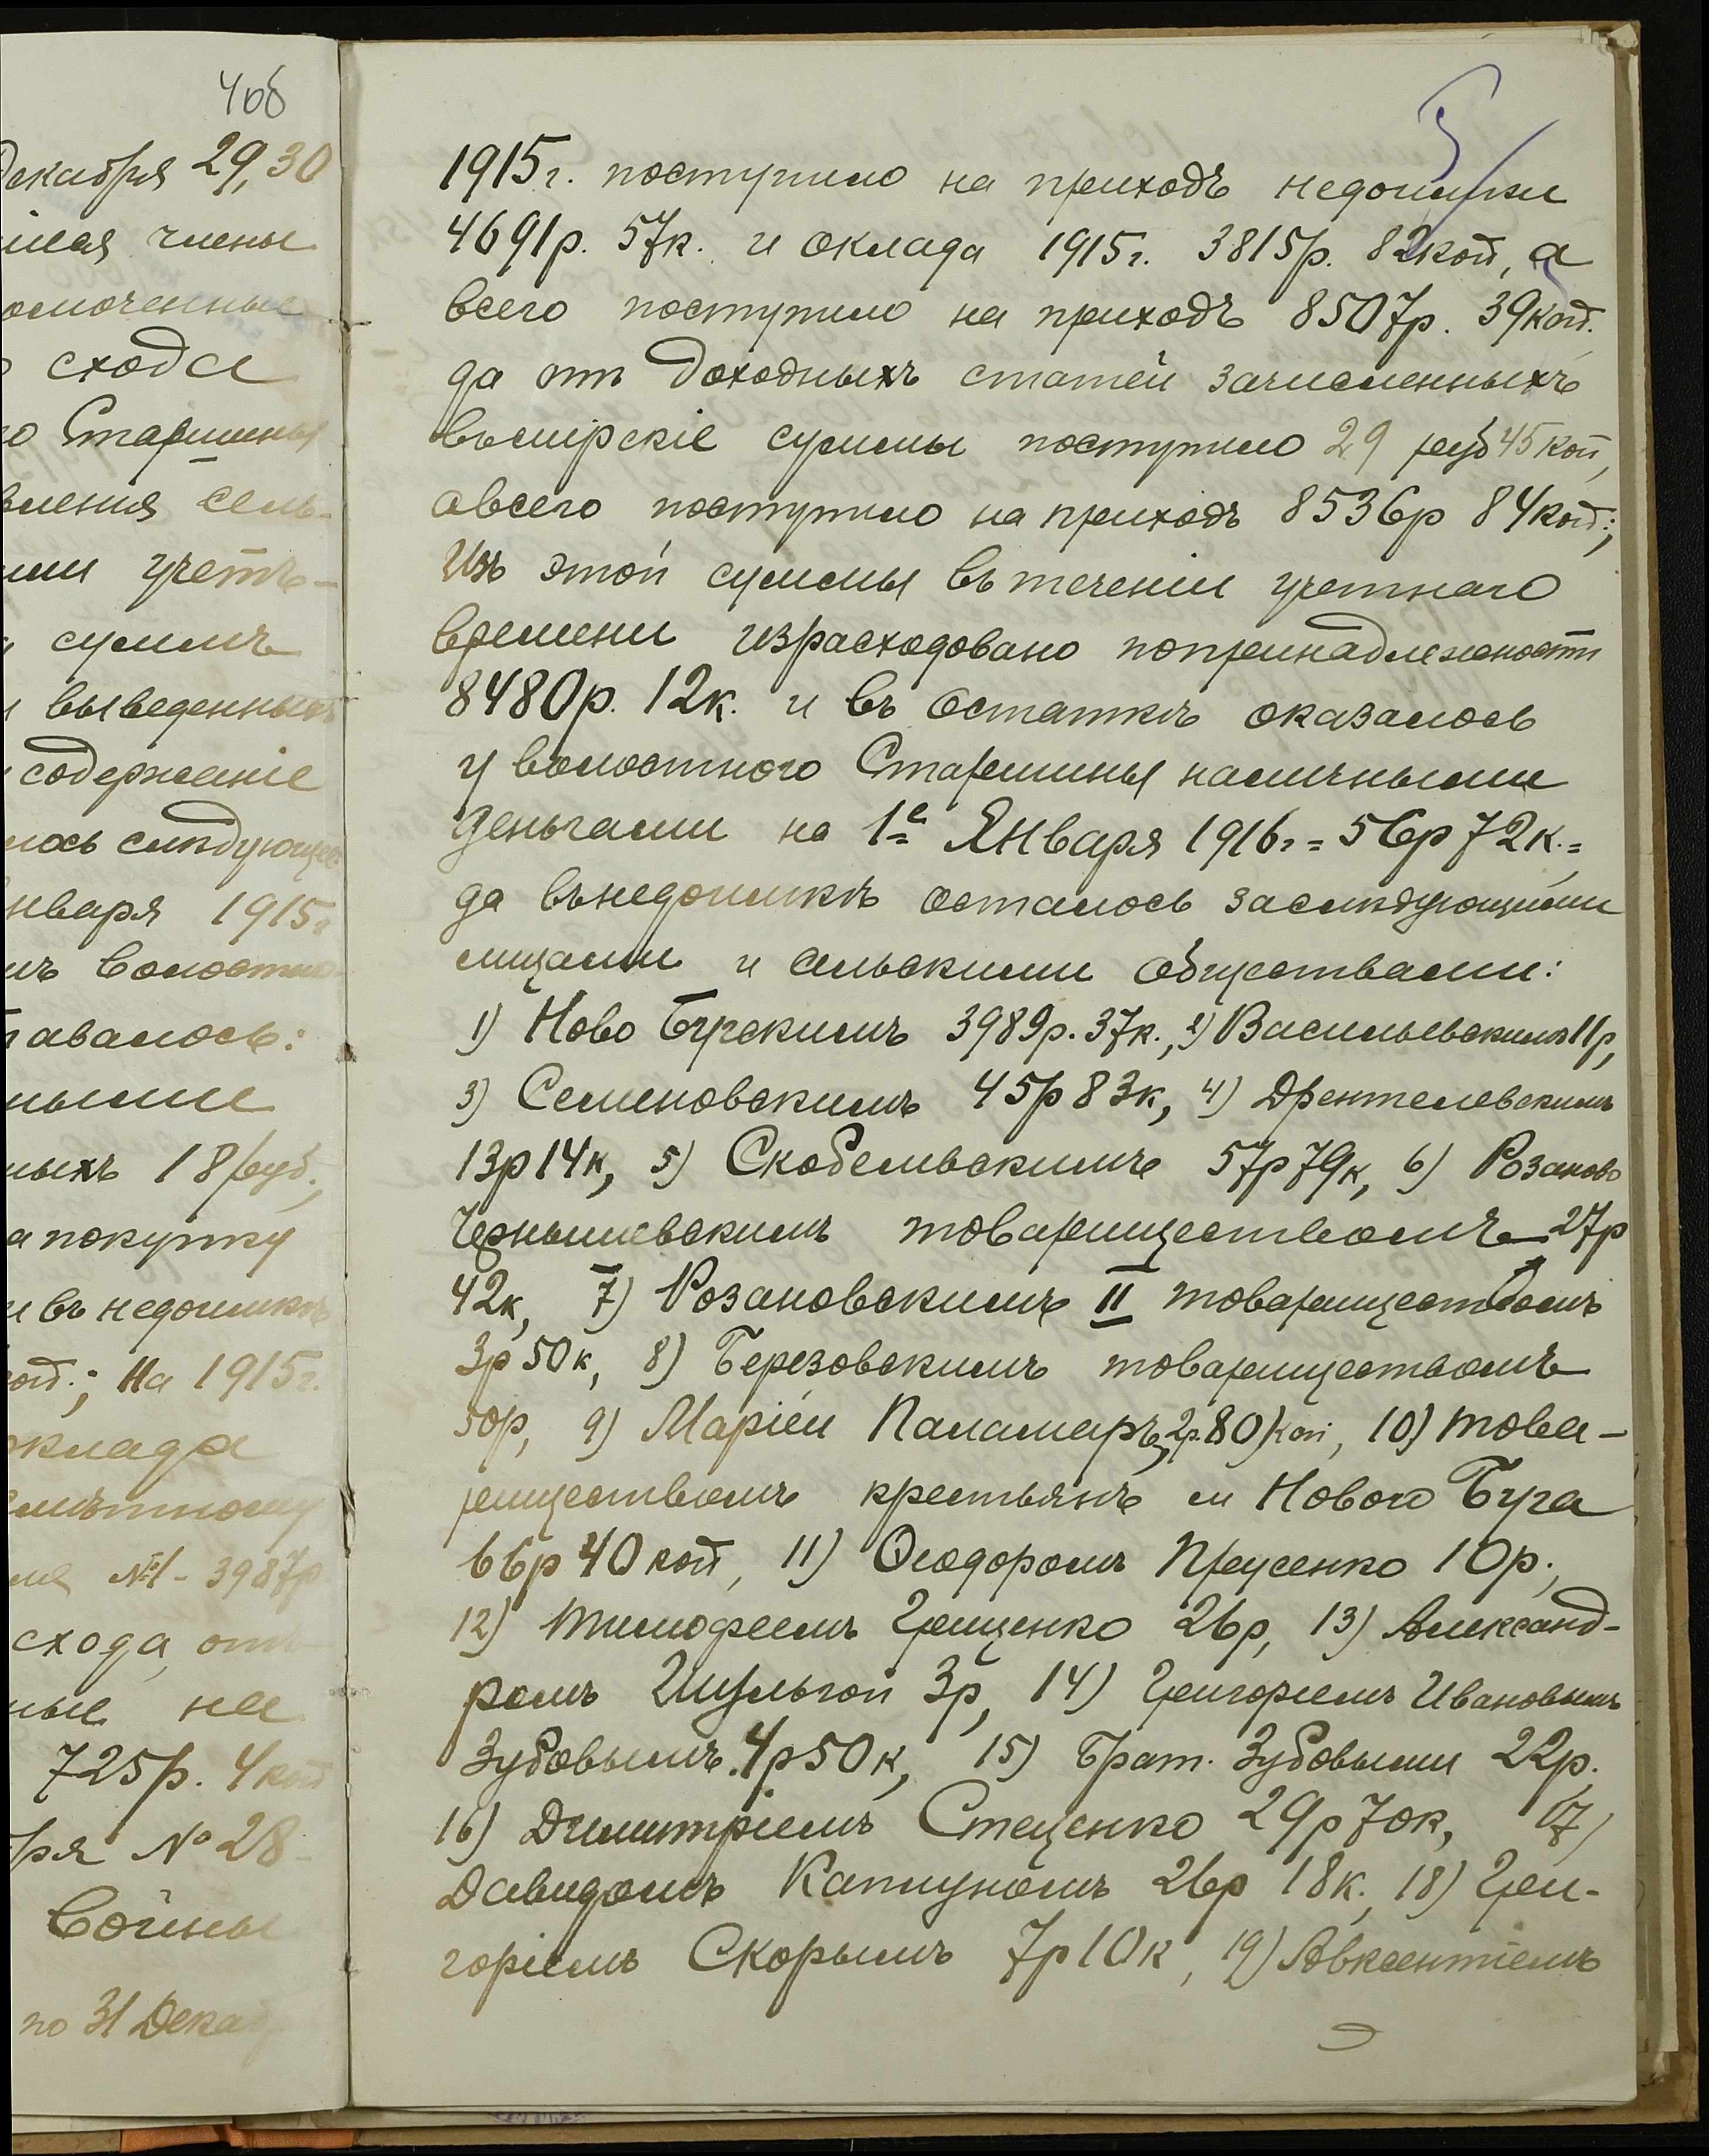 408
Декабря 29, 30
члены
схода
Старшины
вленія сель-
учетъ-
суммъ
выведенныхъ
содержаніе
лось слѣдующее:
нваря 1915г
Волостно
тавалось:
ными
ныхъ 18 руб.,
а покупку
и въ недоимкѣ
коп.; На 1915г.
оклада
смѣтному
№1 - 3987р
схода, отъ
ные на
725р. 4 коп
бря № 28-
Войны
по 31 Декаб
1915г. поступило на приходъ недоимки
4691р. 57к. и оклада 1915г. 3815р. 82коп, а
всего поступило на приходъ 8507р. 39коп.
да отъ доходныхъ статей зачисленныхъ
въ мірскіе суммы поступило 29 руб 45 коп,
а всего поступило на приходъ 8536р 84коп.;
Изъ этой суммы въ теченіи учетнаго
времени израсходовано по принадлежности
8480р. 12к. и въ остаткѣ оказалось
у волостного Старшины наличными
деньгами на 1е Января 1916г = 56р 72к.=
да въ недоимкѣ осталось за слѣдующими
лицами и сельскими обществами:
1) Ново Бугскимъ 3989р. 37к., 2) Васильевскимъ 11р,
3) Семеновскимъ 45р 83к, 4) Дрентелевскимъ
13р 14к, 5) Скобелевскимъ 57р 79к, 6) Розаново
Чернышевскимъ товариществомъ 27р
42к, 7) Розановскимъ II товариществомъ
3р 50к, 8) Березовскимъ товариществомъ
50р, 9) Маріей Паламарь 2р.80)коп, 10) това-
риществомъ крестьянъ м Нового Буга
66р 40 коп, 11) Ѳеодоромъ Прусенко 10р.,
12) Тимофеемъ Грищенко 26р, 13) Александ-
ромъ Шульгой 3р, 14) Григоріемъ Ивановымъ
Зубовымъ 4р 50к, 15) Брат. Зубовыми 22р.
16) Димитріемъ Стеценко 29р 70к, 17)
Давидомъ Капуномъ 26р 18к., 18) Гри-
горіемъ Скорымъ 7р 10к, 19) Авксентіемъ